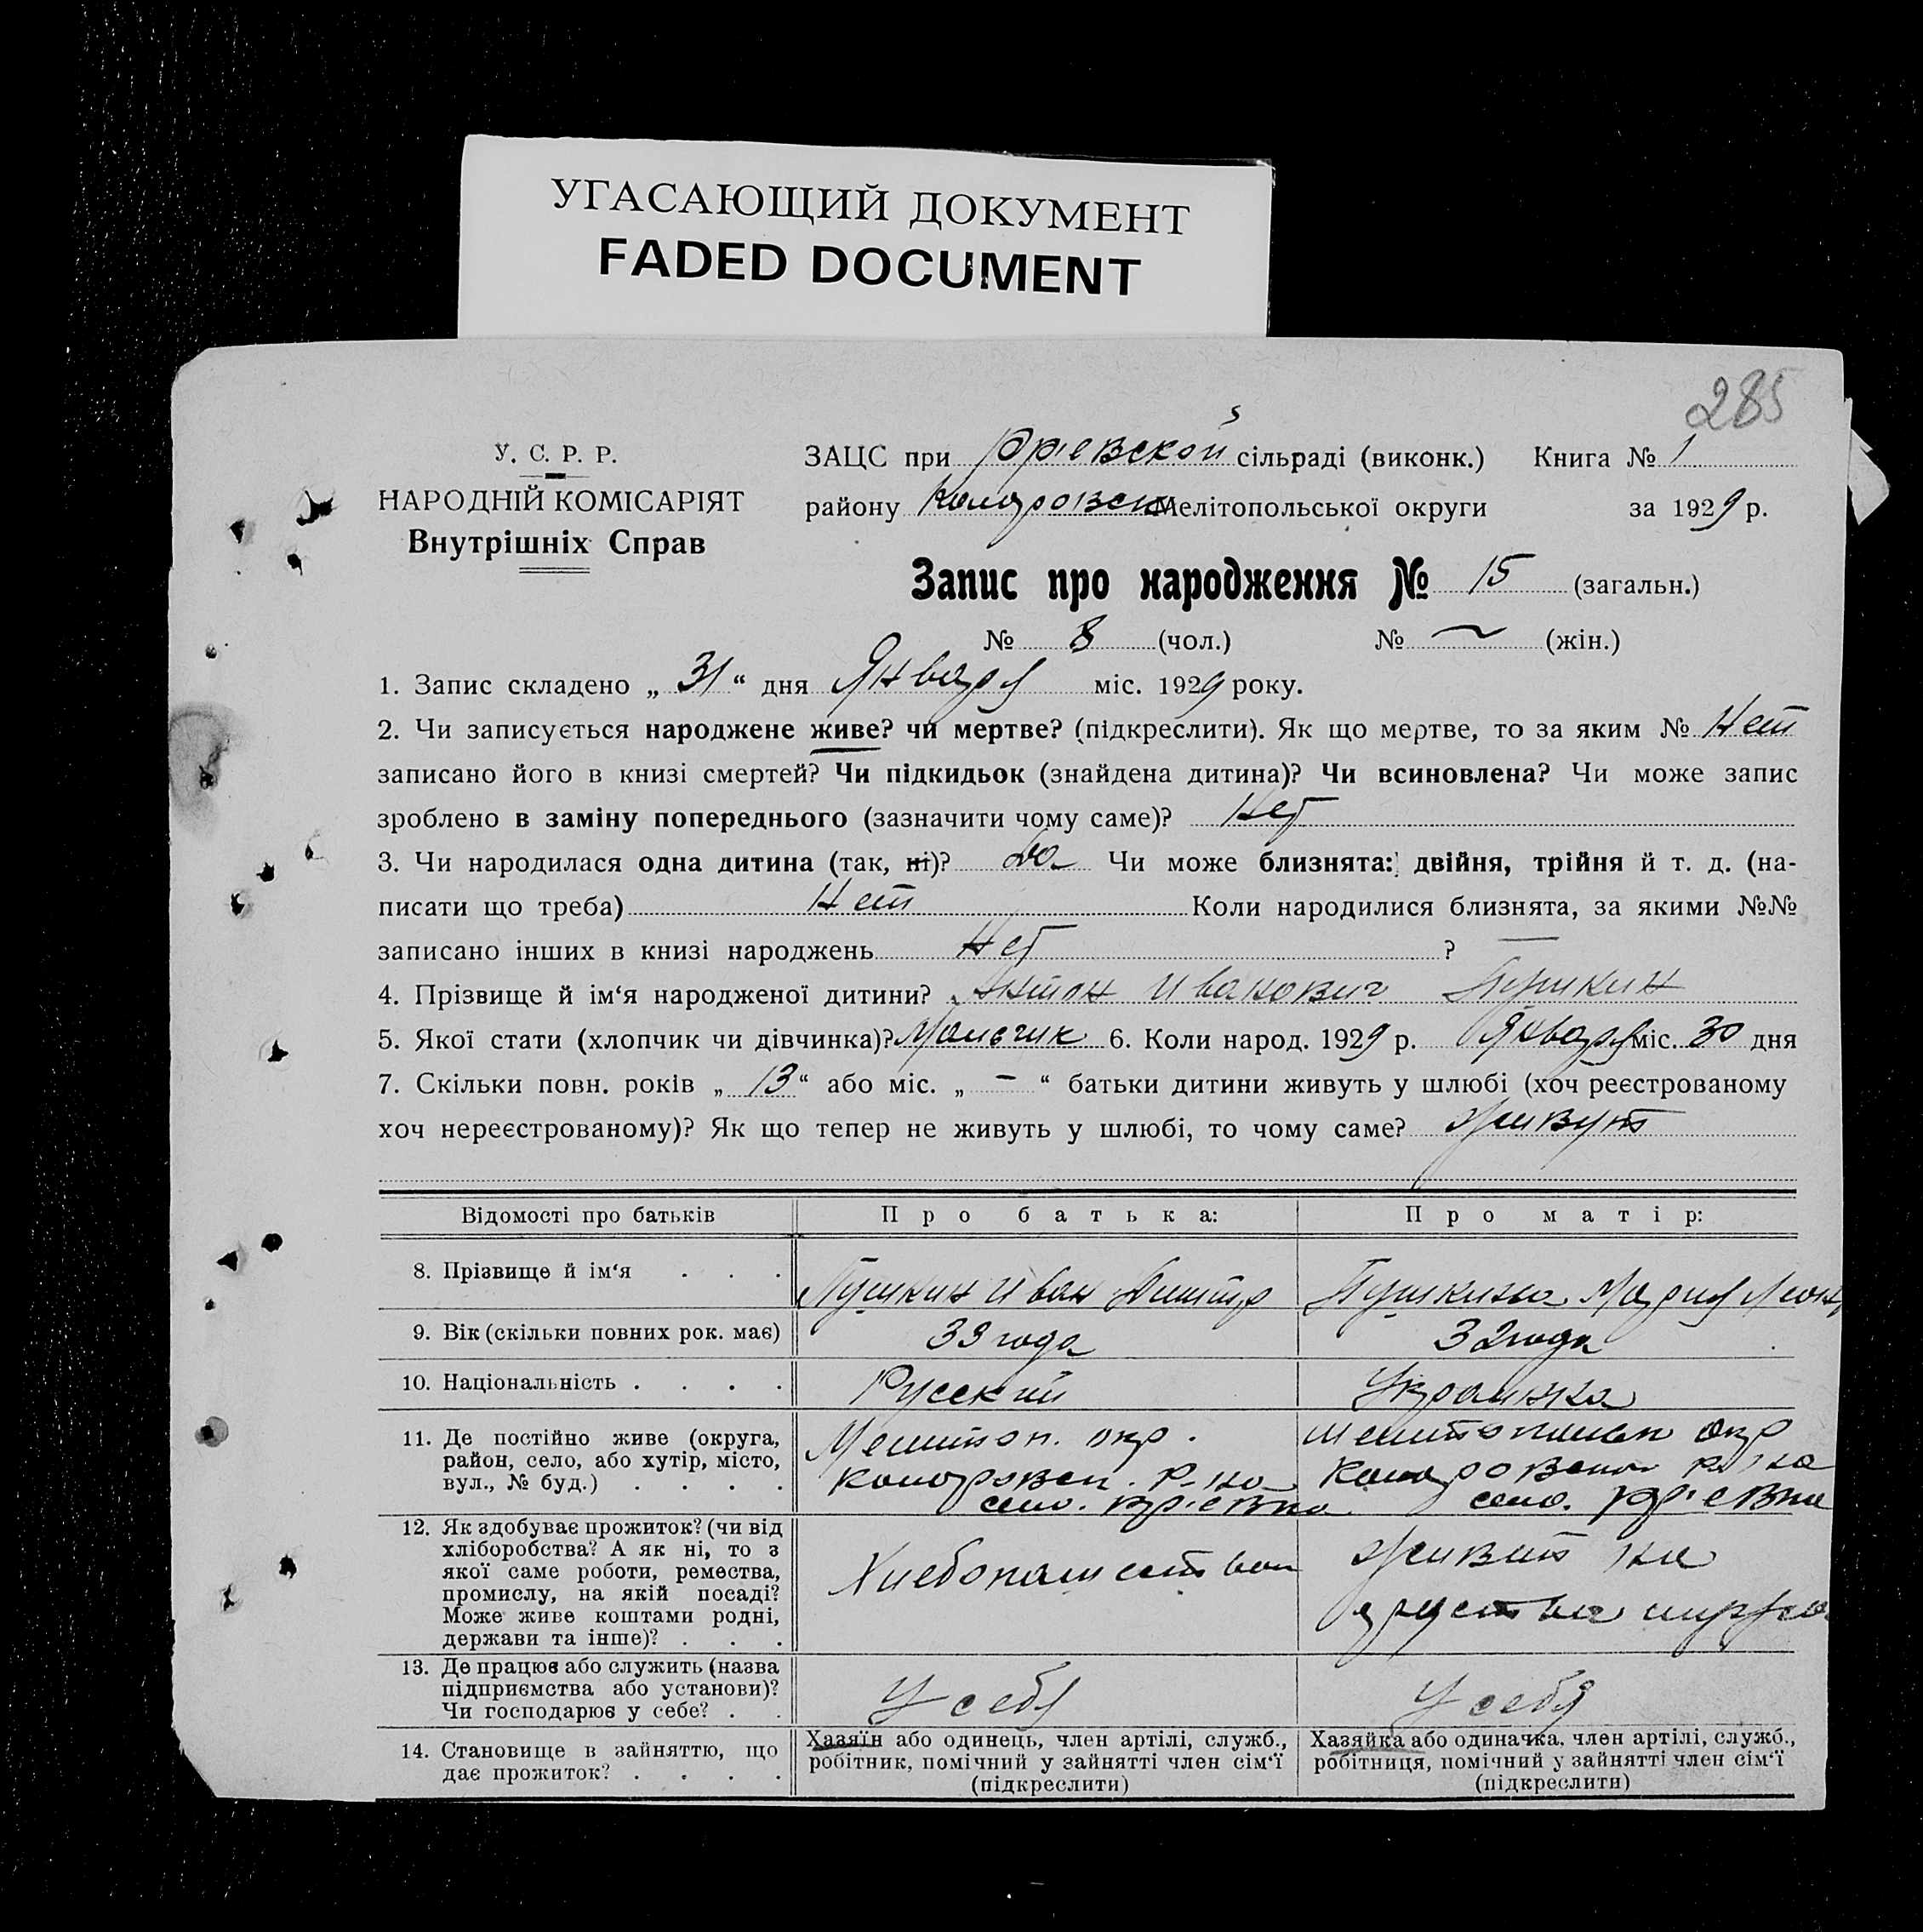 УГАСАЮЩИЙ ДОКУМЕНТ
FADED DOCUMENT
285
У. С. Р. Р.
НАРОДНІЙ КОМІСАРІЯТ
Внутрішніх Справ
ЗАЦС при Юріевской сільраді (виконк.) Книга № 1
району Коларовск Мелітопольської округи за 1929 р.
Запис про народження № 15 (загальн.)
№ 8 (чол.) № ~ (жін.)
1. Запис складено „ 31 “ дня Января міс. 1929 року.
2. Чи записується народжене живе? чи мертве? (підкреслити). Як що мертве, то за яким № Нет
записано його в книзі смертей? Чи підкидьок (знайдена дитина)? Чи всиновлена? Чи може запис
зроблено в заміну попереднього (зазначити чому саме)? Нет
3. Чи народилася одна дитина (так, ні)? да Чи може близнята: двійня, трійня й т. д. (на-
писати що треба) Нет Коли народилися близнята, за якими №№
записано інших в книзі народжень Нет ?
4. Прізвище й ім‘я народженої дитини? Антон Иванович Пушкин
5. Якої стати (хлопчик чи дівчинка)? Мальчик 6. Коли народ. 1929 р. Января міс. 30 дня
7. Скільки повн. років „ 13 “ або міс. „ – “ батьки дитини живуть у шлюбі (хоч реєстрованому
хоч нереєстрованому)? Як що тепер не живуть у шлюбі, то чому саме? живут
Відомості про батьків Про батька: Про матір:
8. Прізвище й ім‘я . . . Пушкин Иван Дмитр Пушкина Мария
9. Вік (скільки повних рок. має) 33 года 32 года
10. Національність . . . . Русский Украинка
11. Де постійно живе (округа,
район, село, або хутір, місто,
вул., № буд.) . . . .
Мелитоп. окр.
Коларовск. р-на
село. Юріевка
Мелитопольск окр
Коларовского р-на
село. Юріевка
12. Як здобуває прожиток? (чи від
хліборобства? А як ні, то з
якої саме роботи, ремества,
промислу, на якій посаді?
Може живе коштами родні,
держави та інше)? . . .
Хлебопашеством
живит на
средства мужа
13. Де працює або служить (назва
підприємства або установи)?
Чи господарює у себе? . .
У себя У себя
14. Становище в зайняттю, що
дає прожиток? . . . .
Хазяїн або одинець, член артілі, служб.,
робітник, помічний у зайнятті член сім‘ї
(підкреслити)
Хазяйка або одиначка, член артілі, служб.,
робітниця, помічний у зайнятті член сім‘ї
(підкреслити)